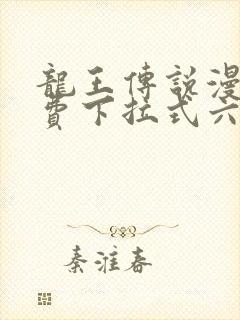 龍王傳説漫
費下拉式六
秦淮春